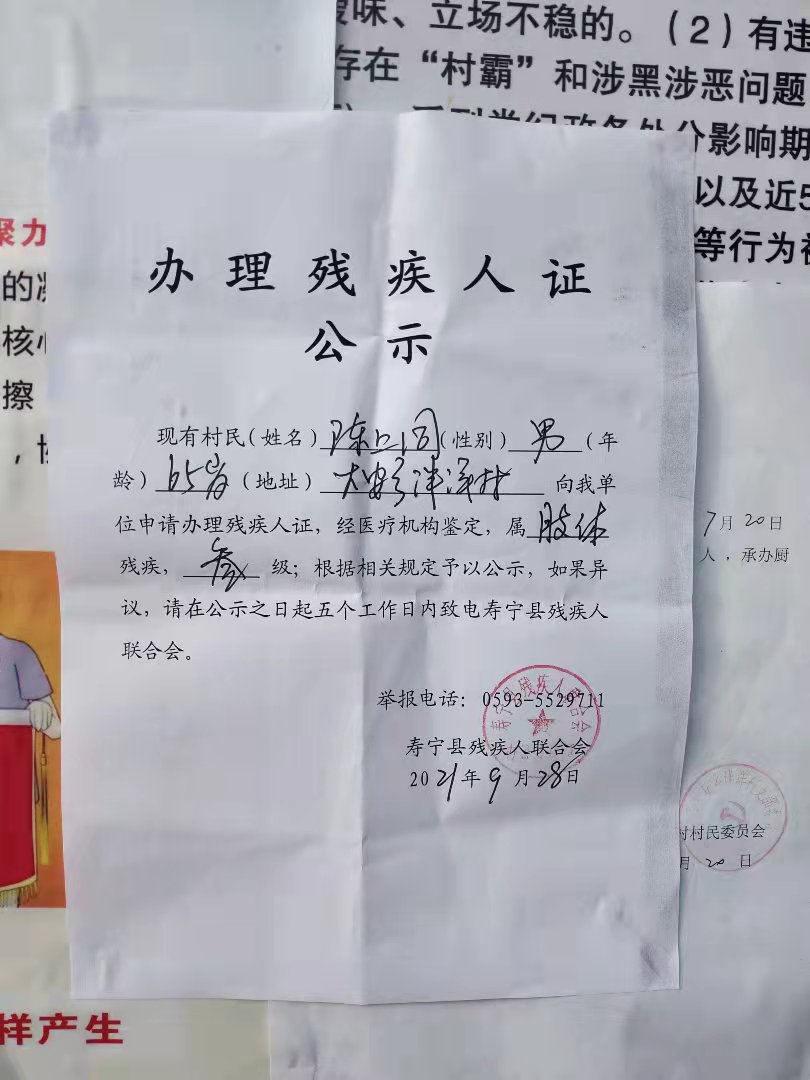 叟味、立场不稳的。（2）有违
存在“村霸”和涉黑涉恶问题
分影响期
以及近5
等行为被
聚力
的凝
核心
擦
样产生
办理残疾人证
公示
现有村民（姓名）陈（性别）男（年
龄）65岁（地址）大安乡洋深村 向我单
位申请办理残疾人证，经医疗机构鉴定，属肢体
残疾，叁级；根据相关规定予以公示，如果异
议，请在公示之日起五个工作日内致电寿宁县残疾人
联合会。
举报电话：0593-5529711
寿宁县残疾人联合会
2021年9月28日
寿宁县残疾人联合会
7月20日
人，承办厨
村村民委员会
月20日